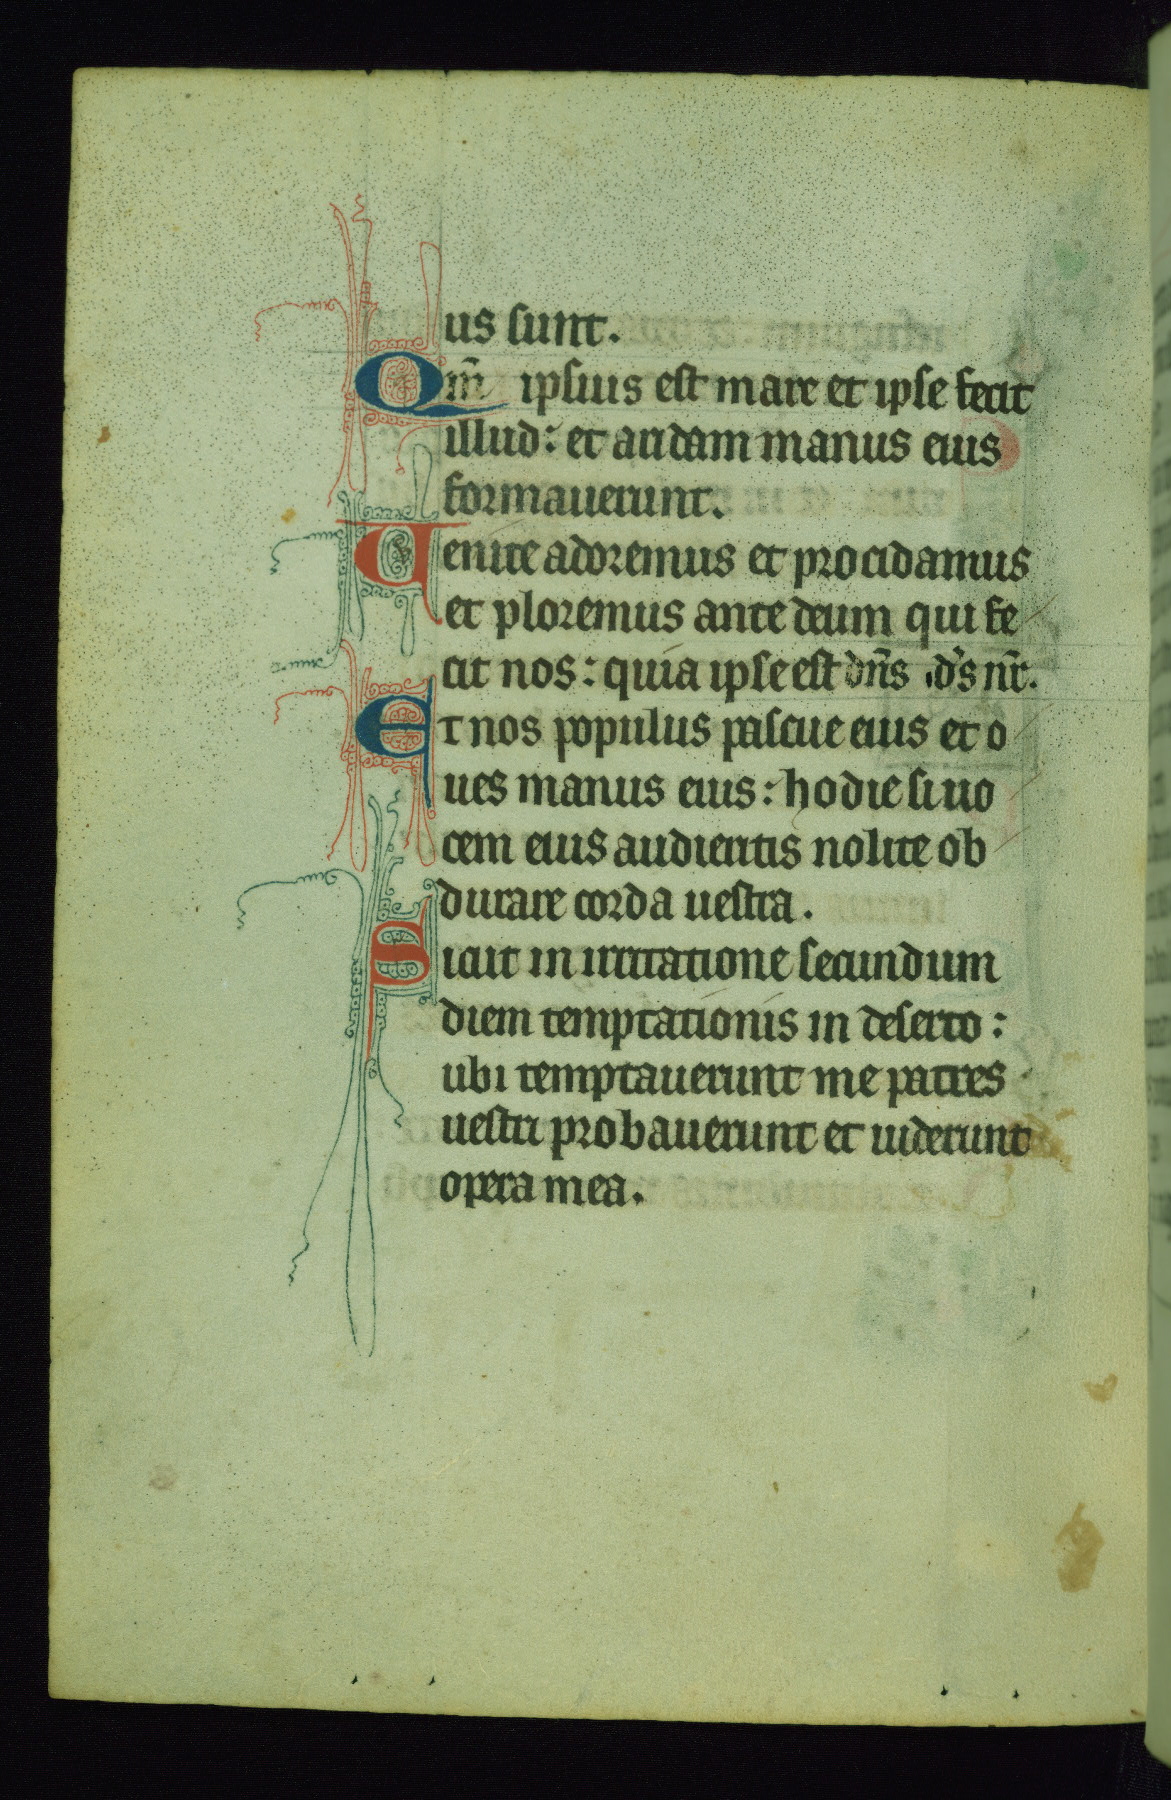 us sunt.
Qm̄ ipsius est mare et ipse fecit
illud: et aridam manus eius
formauerunt.
Uenite adoremus et procidamus
et ploremus ante deum qui fe
cit nos: quia ipse est dn̄s d's nr̄.
Et nos populus pascue eius et o
ues manus eius: hodie si uo
cem eius audieritis nolite ob
durare corda uestra.
Sicut in irritatione secundum
diem temptationis in deserto:
ubi temptauerunt me patres
uestri probauerunt et uiderunt
opera mea.